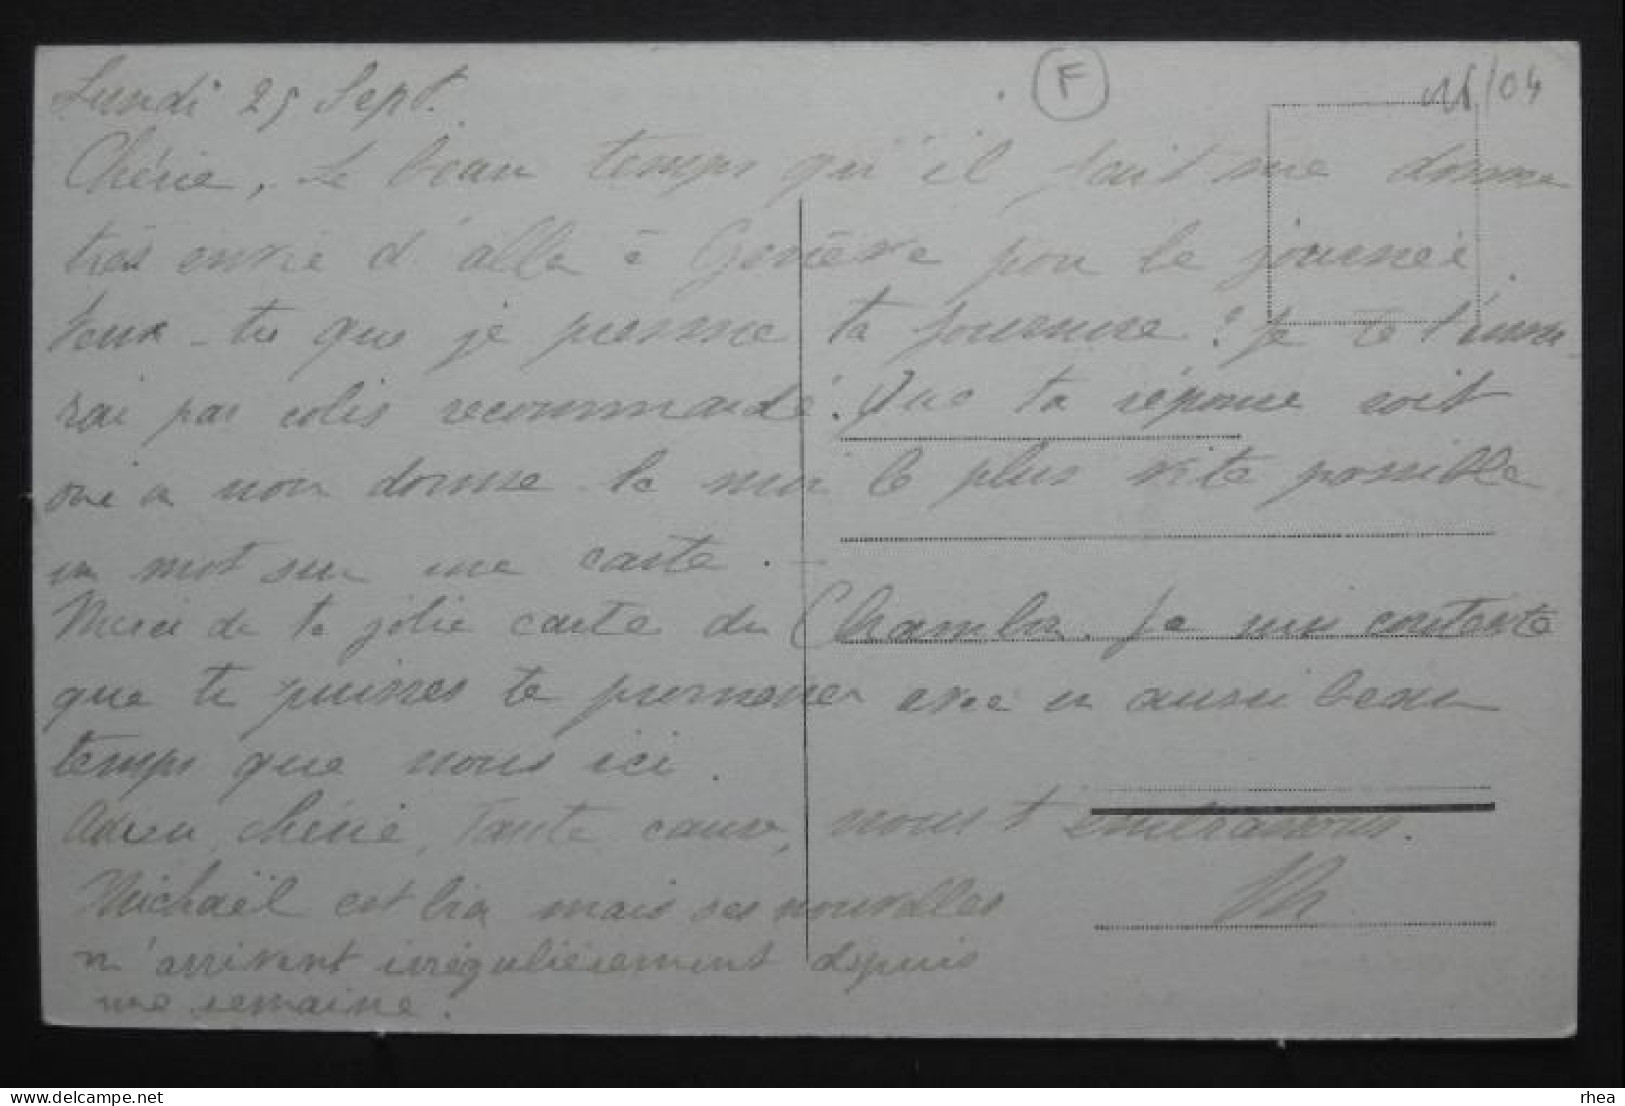 Lundi 25 Sept.
F
15/04
Chérie, Le beau temps qu'il fait me donne
très envie d'aller à Genève pour la journée.
Peux-tu que je prenne ta fourrure? Je te l'enver-
rai par colis recommandé. Que ta réponse soit
oui ou non donne-la moi le plus vite possible
un mot sur une carte.
Merci de ta jolie carte du Chambon. Je suis contente
que tu puisses te promener avec un aussi beau
temps que nous ici.
Adieu, chérie, Tante, nous t'embrassons.
Michaël est bien mais ses nouvelles
n'arrivent irrégulièrement depuis
une semaine.
rhea